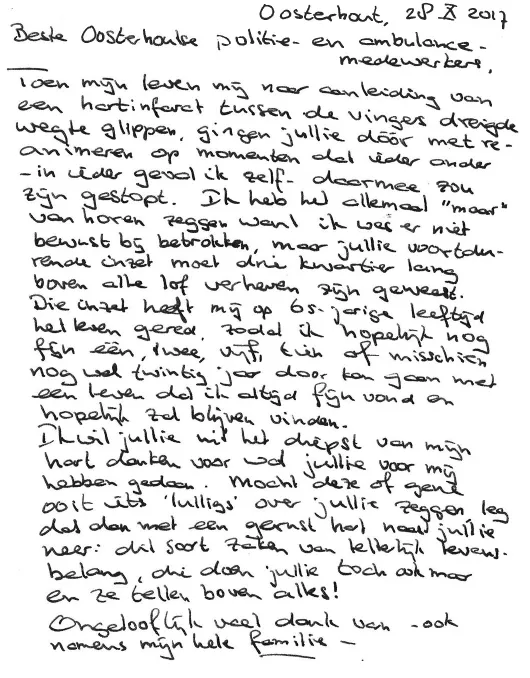 Oosterhout, 28 X 2017
Beste Oosterhoutse politie- en ambulance-
medewerkers,
Toen mijn leven mij naar aanleiding van
een hartinfarct tussen de vingers dreigde
weg te glippen, gingen jullie dóór met re-
animeren op momenten dat ieder ander
- in ieder geval ik zelf - daarmee zou
zijn gestopt. Ik heb het allemaal "maar"
van horen zeggen want ik was er niet
bewust bij betrokken, maar jullie voortdu-
rende inzet moet drie kwartier lang
boven alle lof verheven zijn geweest.
Die inzet heeft mij op 65-jarige leeftijd
het leven gered, zodat ik hopelijk nog
fijn één, twee, vijf, tien of misschien
nog wel twintig jaar door kan gaan met
een leven dat ik altijd fijn vond en
hopelijk zal blijven vinden.
Ik wil jullie uit het diepst van mijn
hart danken voor wat jullie voor mij
hebben gedaan. Mocht deze of gene
ooit iets 'lulligs' over jullie zeggen leg
dat dan met een gerust hart naast jullie
neer: dit soort zaken van letterlijk levens-
belang, die doen jullie toch ook maar
en ze tellen boven alles!
Ongelooflijk veel dank van - ook
namens mijn hele familie -